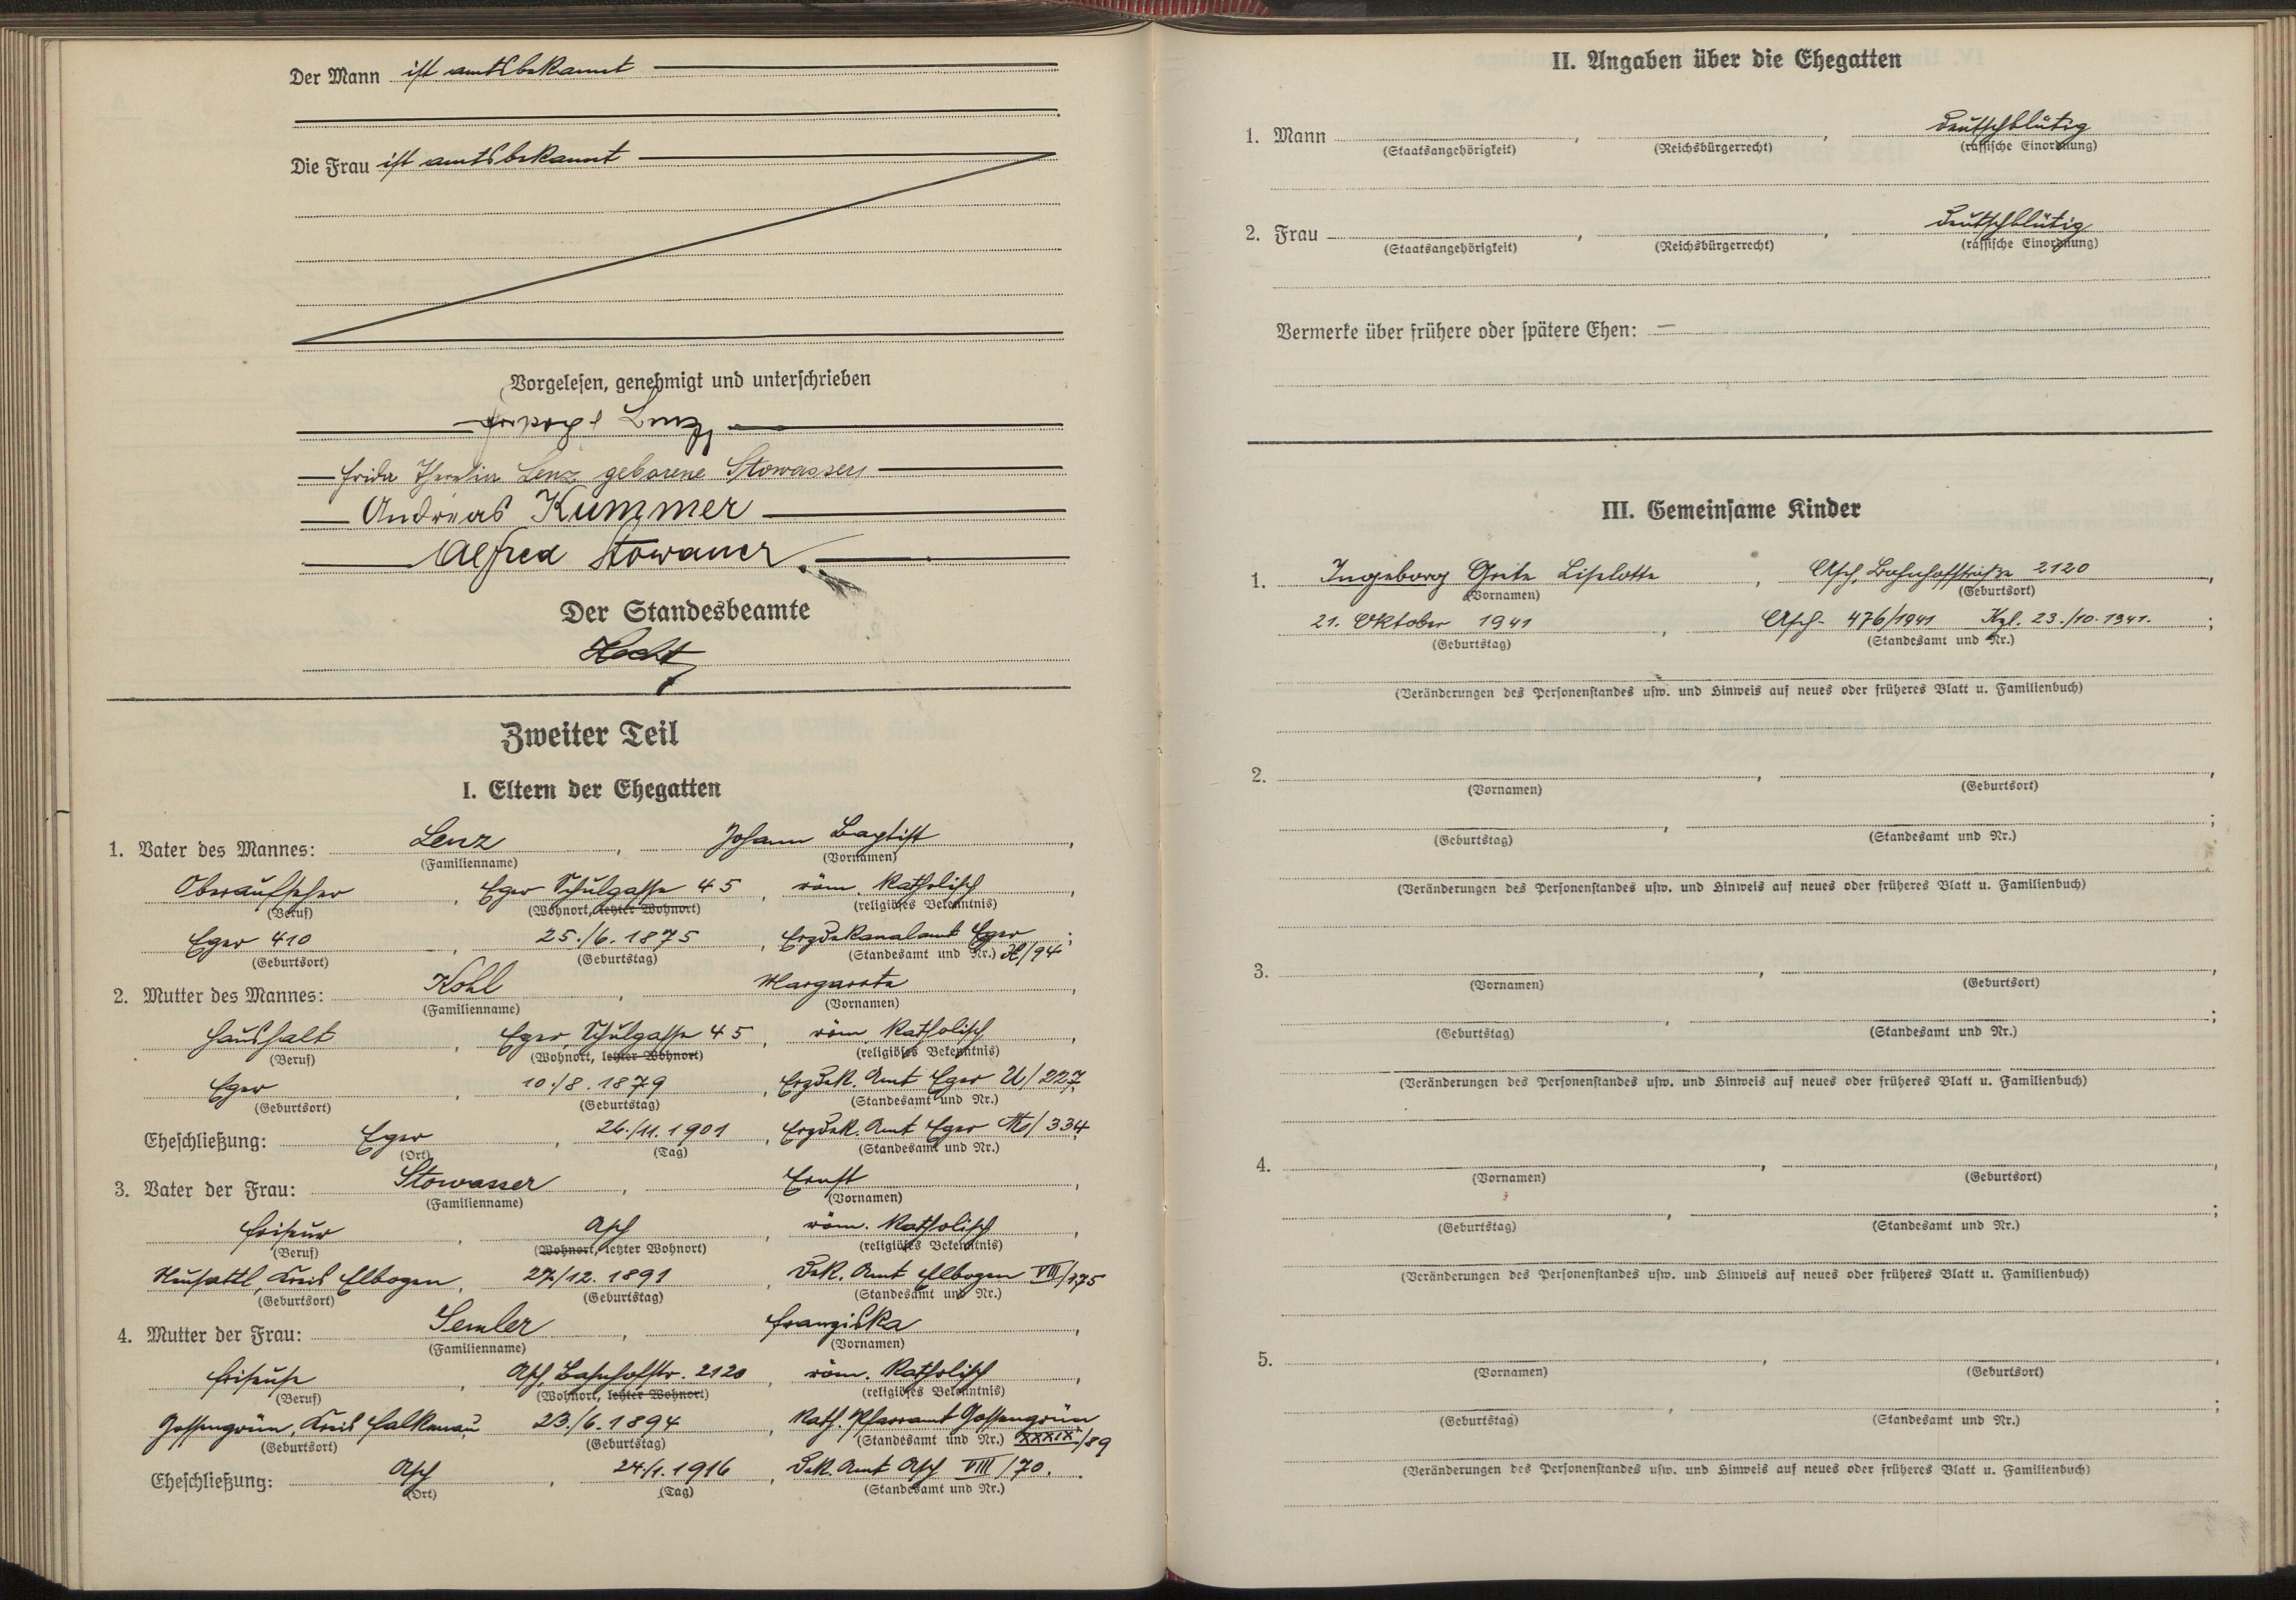 Der Mann ist amtsbekannt
Die Frau ist amtsbekannt
Vorgelesen, genehmigt und unterschrieben
Lenz
Frida Lenz geborene Stowasser
Andreas Kummer
Alfred Stowasser.
Der Standesbeamte
Hecht
Zweiter Teil
I. Eltern der Ehegatten
1. Vater des Mannes: Lenz, Johann Baptist,
(Familienname) (Vornamen)
Oberaufseher, Eger Schulgasse 45, röm. katholisch,
(Beruf) (Wohnort, letzter Wohnort) (religiöses Bekenntnis)
Eger 410, 25./6. 1875, Erzdekanalamt Eger;
(Geburtsort) (Geburtstag) (Standesamt und Nr.) /94
2. Mutter des Mannes: Kohl, Margareta,
(Familienname) (Vornamen)
Haushalt, Eger, Schulgasse 45, röm. katholisch,
(Beruf) (Wohnort, letzter Wohnort) (religiöses Bekenntnis)
Eger, 10./8. 1879, Erzdek. Amt Eger U/227
(Geburtsort) (Geburtstag) (Standesamt und Nr.)
Eheschließung: Eger, 26./11. 1901, Erzdek. Amt Eger /334
(Ort) (Tag) (Standesamt und Nr.)
3. Vater der Frau: Stowasser, Ernst,
(Familienname) (Vornamen)
Friseur, Asch, röm. katholisch,
(Beruf) (Wohnort, letzter Wohnort) (religiöses Bekenntnis)
Neusattl, Kreis Elbogen, 27./12. 1891, Dek. Amt Elbogen VIII/175
(Geburtsort) (Geburtstag) (Standesamt und Nr.)
4. Mutter der Frau: Semler, Franziska,
(Familienname) (Vornamen)
Friseuse, Asch, Bahnhofstr. 2120, röm. katholisch,
(Beruf) (Wohnort, letzter Wohnort) (religiöses Bekenntnis)
Gossengrün, Kreis Falkenau 23./6. 1894, Kath. Pfarramt Gossengrün
(Geburtsort) (Geburtstag) (Standesamt und Nr.) XXXIX/89
Eheschließung: Asch, 24./1. 1916, Dek. Amt Asch VIII/70.
(Ort) (Tag) (Standesamt und Nr.)
II. Angaben über die Ehegatten
1. Mann , , deutschblütig
(Staatsangehörigkeit) (Reichsbürgerrecht) (rassische Einordnung)
2. Frau , , deutschblütig
(Staatsangehörigkeit) (Reichsbürgerrecht) (rassische Einordnung)
Vermerke über frühere oder spätere Ehen: —
III. Gemeinsame Kinder
1. Ingeborg Grete Liselotte, Asch, Bahnhofstraße 2120,
(Vornamen) (Geburtsort)
21. Oktober 1941, Asch 476/1941 Kzl. 23./10. 1941.;
(Geburtstag) (Standesamt und Nr.)
(Veränderungen des Personenstandes usw. und Hinweis auf neues oder früheres Blatt u. Familienbuch)
2. , ,
(Vornamen) (Geburtsort)
, ;
(Geburtstag) (Standesamt und Nr.)
(Veränderungen des Personenstandes usw. und Hinweis auf neues oder früheres Blatt u. Familienbuch)
3. , ,
(Vornamen) (Geburtsort)
, ;
(Geburtstag) (Standesamt und Nr.)
(Veränderungen des Personenstandes usw. und Hinweis auf neues oder früheres Blatt u. Familienbuch)
4. , ,
(Vornamen) (Geburtsort)
, ;
(Geburtstag) (Standesamt und Nr.)
(Veränderungen des Personenstandes usw. und Hinweis auf neues oder früheres Blatt u. Familienbuch)
5. , ,
(Vornamen) (Geburtsort)
, ;
(Geburtstag) (Standesamt und Nr.)
(Veränderungen des Personenstandes usw. und Hinweis auf neues oder früheres Blatt u. Familienbuch)